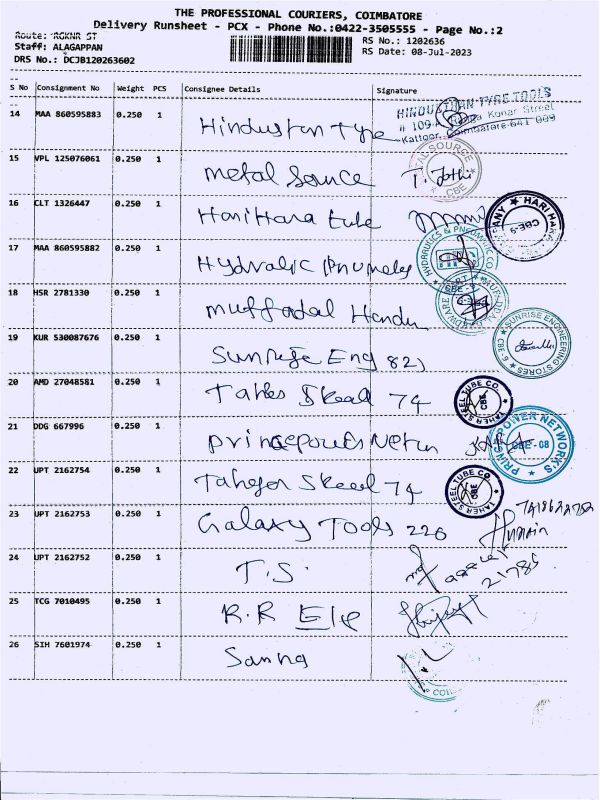 THE PROFESSIONAL COURIERS, COIMBATORE
Delivery Runsheet - PCX - Phone No.:0422-3505555 - Page No.:2
Route: RGKNR ST
Staff: ALAGAPPAN
DRS No.: DCJB120263602
RS No.: 1202636
RS Date: 08-Jul-2023
S No Consignment No Weight PCS Consignee Details Signature
14 MAA 860595883 0.250 1 Hindustan Tyre
HINDUSTAN TYRE TOOLS
# 109 Konar Street
Kattoor, Coimbatore-641 009
15 VPL 125076061 0.250 1 metal Source T. Jothi
SOURCE
★ CBE ★
16 CLT 1326447 0.250 1 Harihara tube
HARI HARA
CBE-9
17 MAA 860595882 0.250 1 Hydralic
HYDRAULICS & PNEUMATIC CO
18 HSR 2781330 0.250 1 muffadal
19 KUR 530087676 0.250 1 Sunrise Eng 82)
SUNRISE ENGINEERING STORES ★ CBE - 9 ★
20 AMD 27048581 0.250 1 Taher Steel 74
TAHER STEEL TUBE CO. CBE
21 DDG 667996 0.250 1
POWER NETWORKS
CBE - 08
22 UPT 2162754 0.250 1 Steel 74
TAHER STEEL TUBE CO CBE
23 UPT 2162753 0.250 1 Galaxy Tools 226
24 UPT 2162752 0.250 1 T.S. 21785
25 TCG 7010495 0.250 1 R.R Ele
26 SIH 7601974 0.250 1